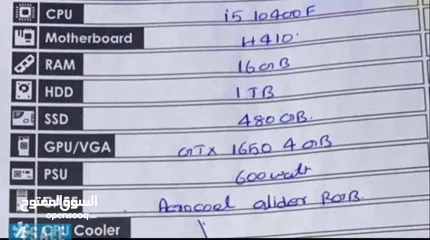 CPU i5 10400F
Motherboard H410.
RAM 16GB
HDD 1TB
SSD 480GB.
GPU/VGA GTX 1650 4GB
PSU 600watt
Aerocool glider
السوق المفتوح
opensooq.com
CPU Cooler